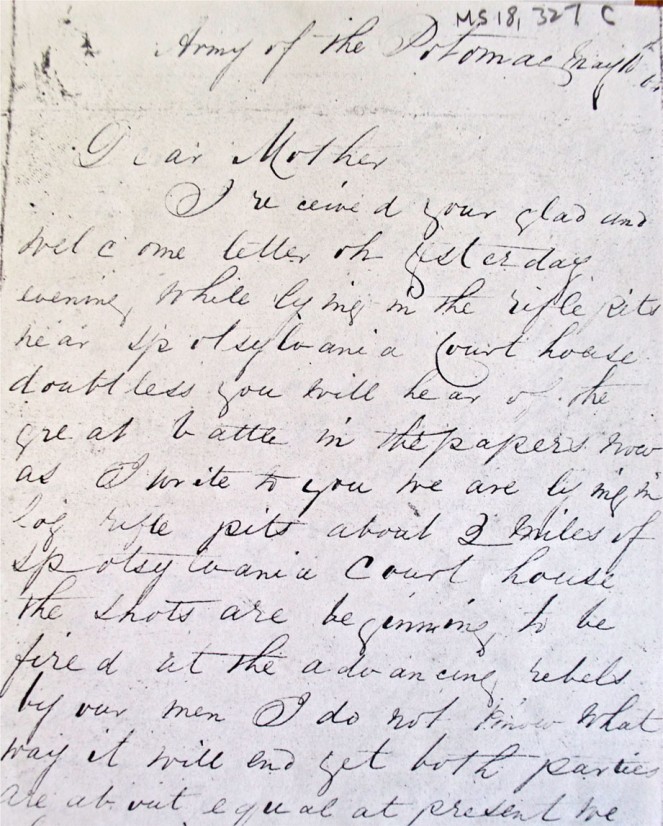 MS 18, 327 C
Army of the Potomac May 16
Dear Mother
I received your glad and
welcome letter on yesterday
evening while lying in the rifle pits
near Spotsylvania Court house
doubtless you will hear of the
great battle in the papers now
as I write to you we are lying in
log rifle pits about 2 miles of
Spotsylvania Court house
the shots are beginning to be
fired at the advancing rebels
by our men I do not know what
way it will end yet both parties
are about equal at present we